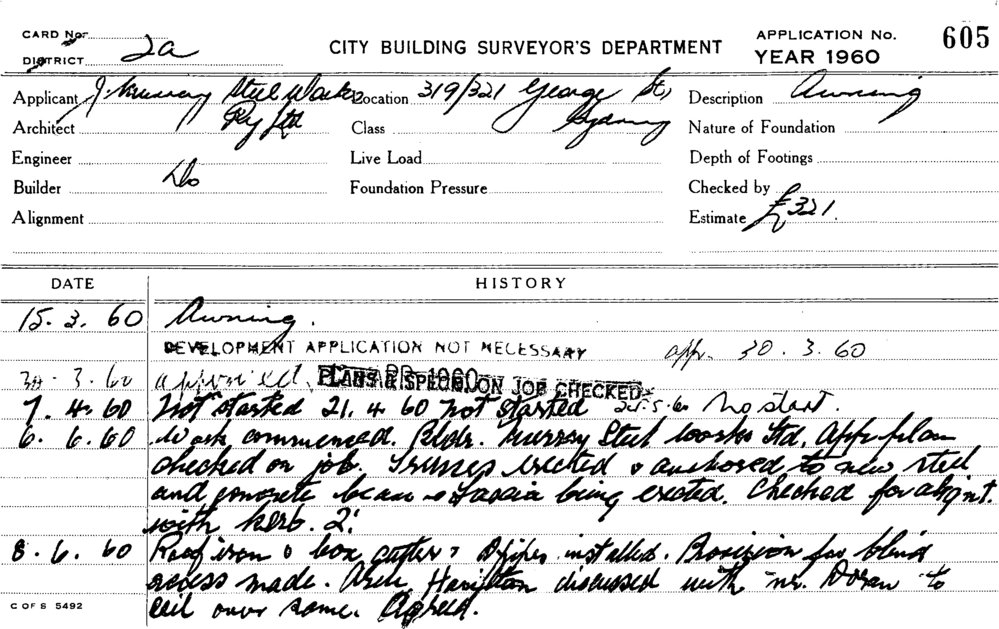 CARD No.
DISTRICT 2a
CITY BUILDING SURVEYOR'S DEPARTMENT
APPLICATION No. 605
YEAR 1960
Applicant J. Murray Steel Works Pty Ltd
Location 319/321 George St, Sydney
Description Awning
Architect
Class
Nature of Foundation
Engineer
Live Load
Depth of Footings
Builder Do
Foundation Pressure
Checked by
Alignment
Estimate £321.
DATE
HISTORY
15. 3. 60 Awning.
DEVELOPMENT APPLICATION NOT NECESSARY app. 30. 3. 60
30. 3. 60 approved PLANS & SPECN. ON JOB CHECKED
7. 4. 60 not started 21. 4 60 not started 20.5.60 No start.
6. 6. 60 Work commenced. Bldr. Murray Steel Works Ltd, App. plan
checked on job. Trusses erected & anchored to new steel
and concrete beam & fascia being erected. Checked for alignt.
with kerb. 2'
8. 6. 60 Roof iron & box gutter & D/pipes installed. Provision for blind
access made. Arch. Hamilton discussed with Mr. Doran to
ceil over same. Agreed.
C OF S 5492